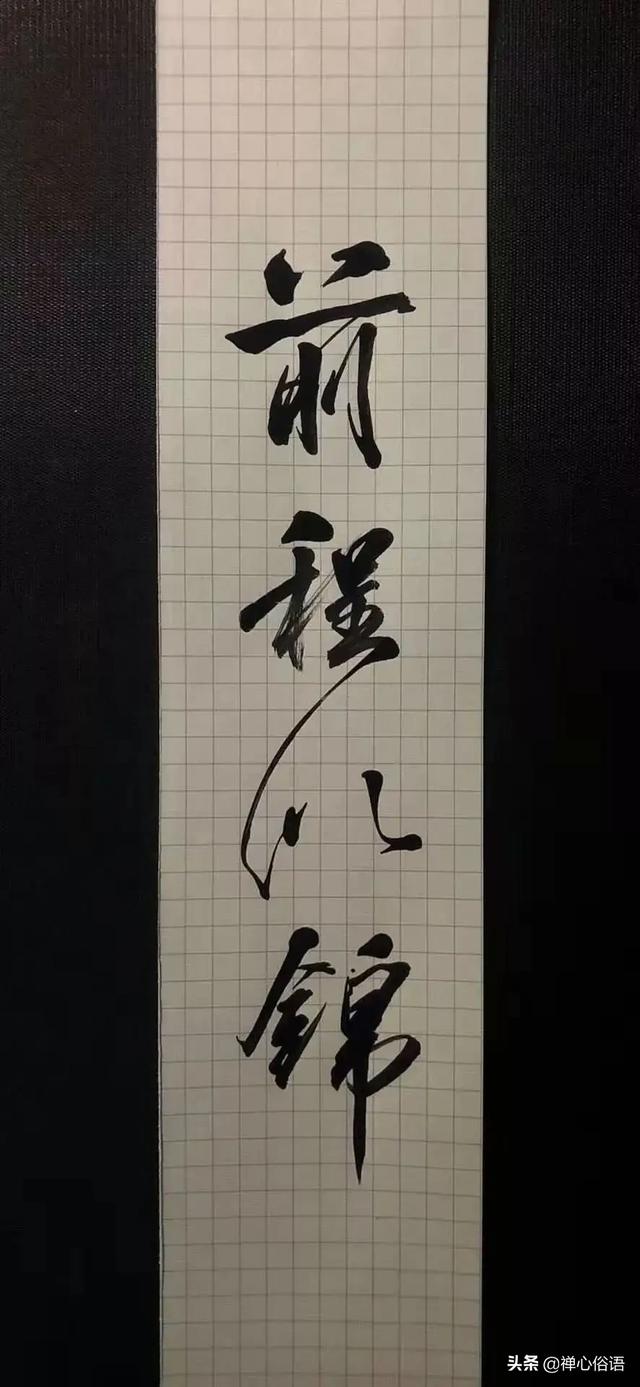 前程似錦
头条 @禅心俗语